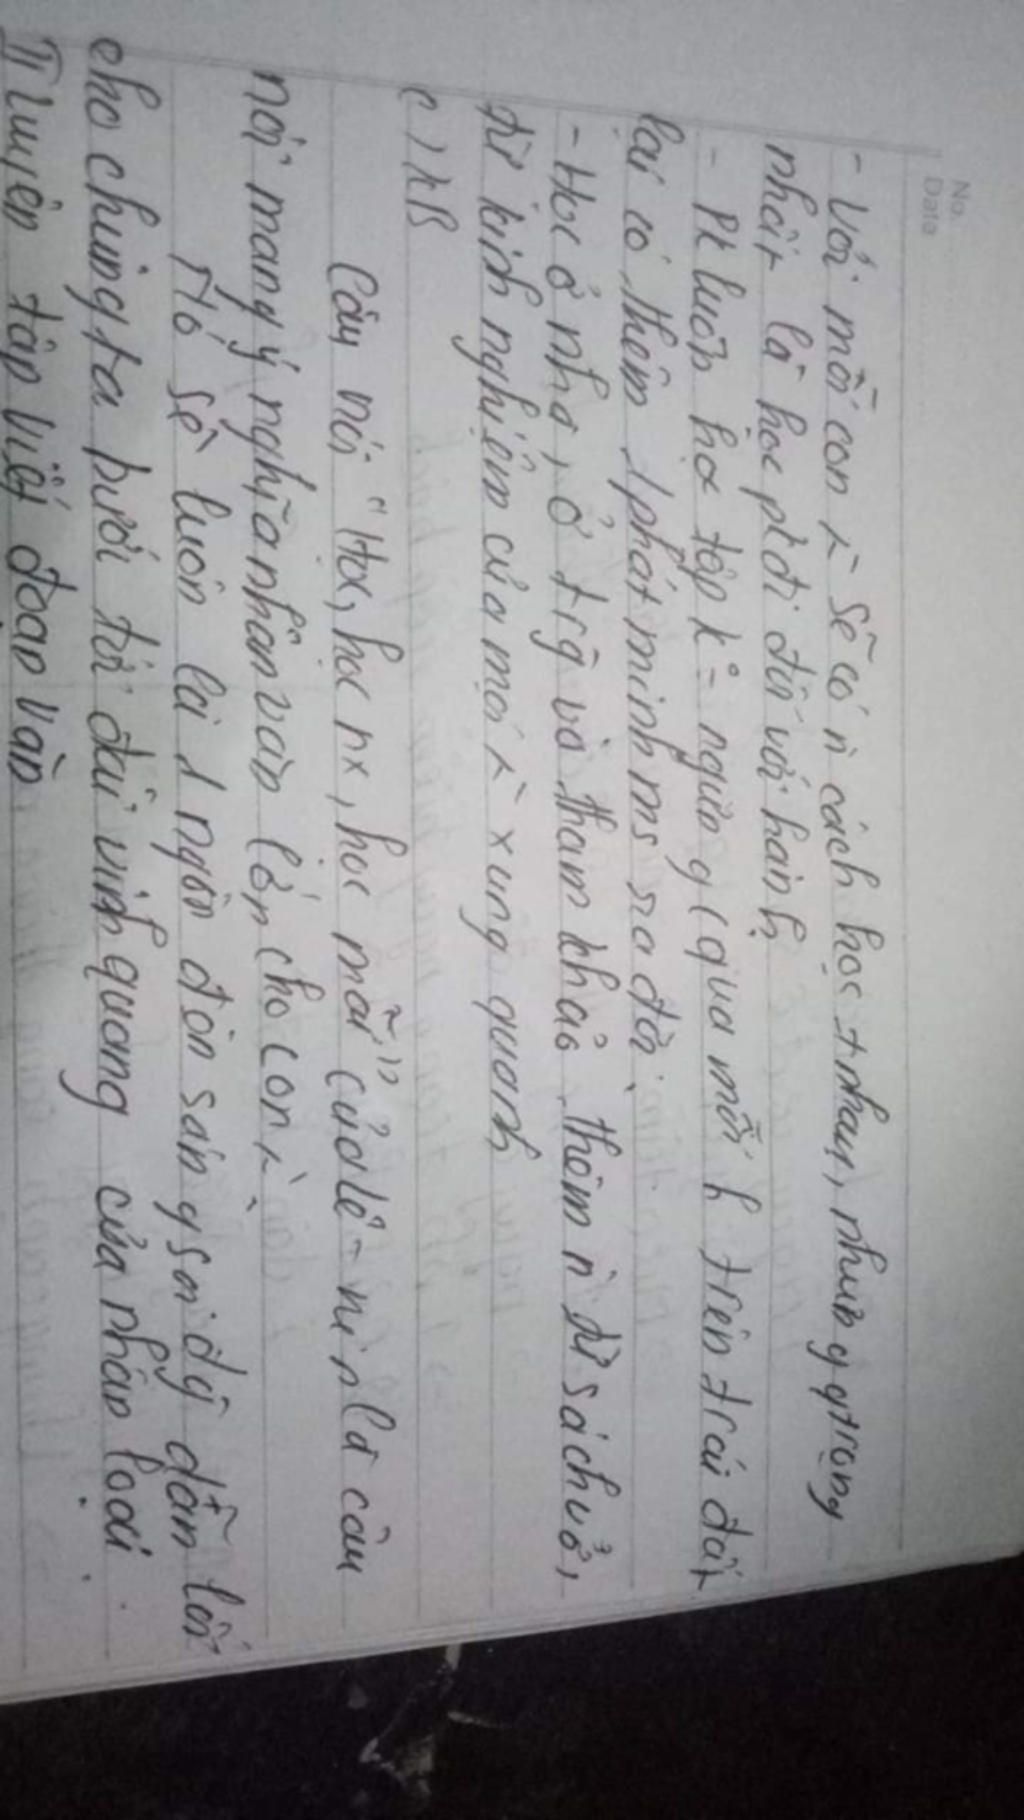 No.
Date
- Với mỗi con ` sẽ có n cách học # nhau, nhưng q trọng
nhất là học pk đi đôi với hành
- Pk luôn học tập k° = ngừng (qua mỗi h trên trái đất
lại có thêm 1 phát minh ms ra đời
- Học ở nhà, ở trg và tham khảo thêm n từ sách vở,
từ kinh nghiệm của mọi ` xung quanh
c) KB
Câu nói "Học, học nx, học mãi" của Lê-nin là câu
nói mang ý nghĩa nhân văn lớn cho con `
Nó sẽ luôn là 1 ngọn đèn sáng soi đg dẫn lối
cho chúng ta bước tới đài vinh quang của nhân loại.
II Luyện tập viết đoạn văn